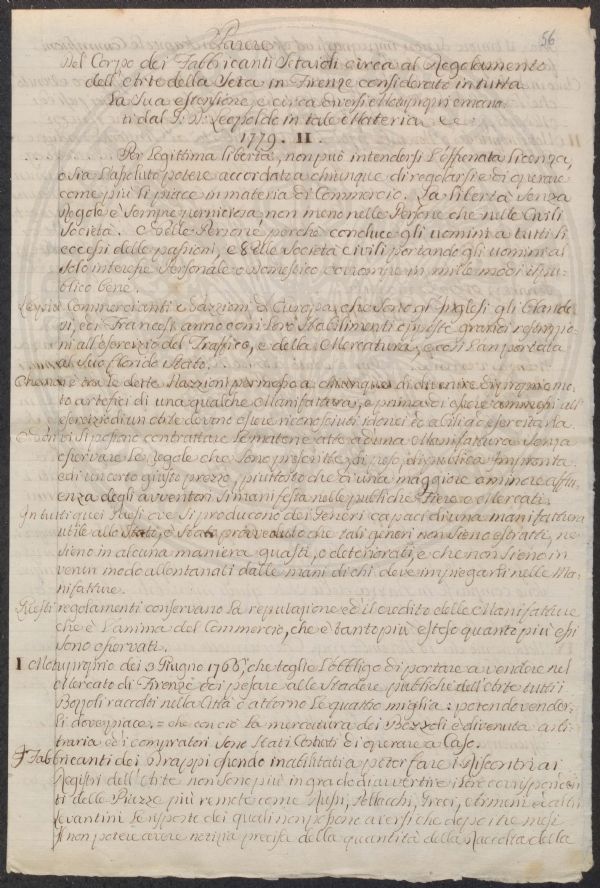 56
Parere
Del Corpo dei Fabbricanti Setaioli circa al Regolamento
dell'Arte della Seta in Firenze considerato in tutta
la sua estensione, e circa diversi Motuproprj emana-
ti dal P. L. Leopoldo in tale Materia &c
1779. II.
Per legittima libertà, non può intendersi l'effrenata licenza,
o sia l'assoluto potere accordato a chiunque di regolarsi e di operare
come più li piace in materia di Commercio. La libertà senza
Regole è sempre perniciosa, non meno nelle Persone che nelle Civili
Società. Nelle Persone perché conduce gli uomini a tutti li
eccessi delle passioni, e nelle Società civili portando gli uomini al
solo interesse Personale e Domestico, corrompe in mille modi il pub-
blico bene.
Le più Commercianti Nazioni d'Europa, che sono gl'Inglesi gli Olande-
si, ed i Francesi, anno con i loro stabilimenti
ni all'esercizio del Traffico, e della Mercatura, e così l'an portata
al suo florido stato.
Che non è tra le dette Nazioni permesso a chiunque di divenire di proprio mo-
to artefici di una qualche Manifattura, e prima di essere ammessi all'
esercizio di un'Arte devino essere riconosciuti idonei ed abili ad esercitarla.
si possono contrattare le materie atte ad una Manifattura senza
osservare le Regole che sono prescritte, di peso, di publica Impronta
ed un certo giusto prezzo, piuttosto che di una maggiore o minore afflu-
enza degli avventori si manifesta nelle publiche Fiere e Mercati.
In tutti quei Paesi ove si producono dei Generi capaci di una manifattura
utile allo Stato, è stato proveduto che tali generi non sieno estratti, ne
sieno in alcuna maniera guasti, o deteriorati, e che non sieno in
verun modo allontanati dalle mani di chi deve impiegarli nelle Ma-
nifatture.
Questi regolamenti conservano la reputazione ed il credito delle Manifatture
che è l'anima del Commercio, che è tanto più esteso quanto più essi
sono osservati.
I Motuproprio dei 3 Giugno 1768, che toglie l'obbligo di portare a vendere nel
Mercato di Firenze dei pesare alle Stadere publiche dell'Arte tutti i
Bozzoli raccolti nella Città e attorno le quattro miglia: potendo vender-
li dove piace. = che con ciò la mercatura dei Bozzoli è divenuta arbi-
traria ed i compratori sono stati costretti di operare a Caso.
Fabbricanti dei Drappi essendo inabilitati a poter fare i Riscontri ai
Registri dell'Arte non sono più in grado di avvertire i loro corrisponden-
ti delle Piazze più remote come Russi, Polacchi, Greci, Armeni ed altri
Levantini le risposte dei quali non si possono aversi che dopo tre mesi
Il non potere avere notizia precisa della quantità della Raccolta della